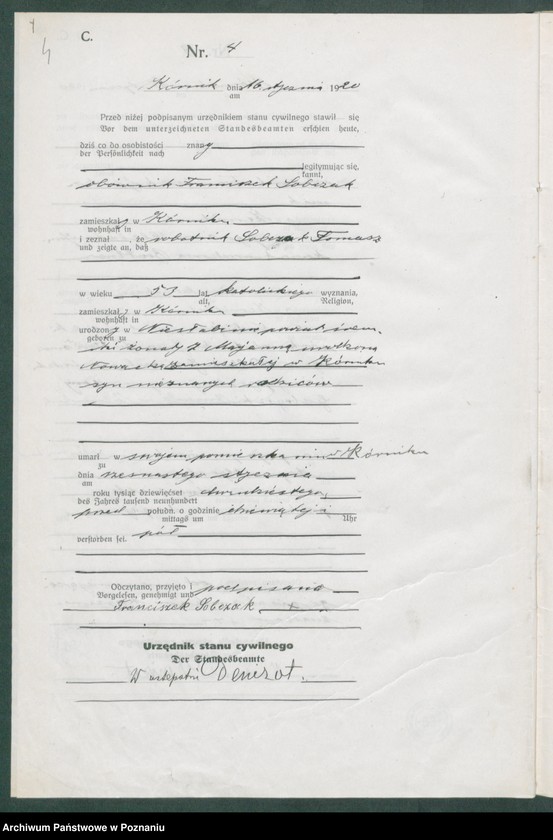 C.
Nr. 4
Kórnik dnia 16 stycznia 1920
am
Przed niżej podpisanym urzędnikiem stanu cywilnego stawił się
Vor dem unterzeichneten Standesbeamten erschien heute,
dziś co do osobistości znany
der Persönlichkeit nach
legitymując się,
kannt,
Franciszek Sobczak
zamieszkały w Kórniku
wohnhaft in
i zeznał, że robotnik Sobczak Tomasz
und zeigte an, daß
w wieku 53 lat, katolickiego wyznania,
alt, Religion,
zamieszkały w Kórniku
wohnhaft in
urodzony w powiat
geboren zu
żonaty z Marjanną
zamieszkałej w Kórniku
syn nieznanych rodziców
umarł w swojem pomieszkaniu w Kórniku
zu
dnia szesnastego stycznia
am
roku tysiąc dziewięćset dwudziestego,
des Jahres tausend neunhundert
przed połudn. o godzinie dziewiątej i
mittags um Uhr
pół
verstorben sei.
Odczytano, przyjęto i podpisano
Vorgelesen, genehmigt und
Franciszek Sobczak
Urzędnik stanu cywilnego
Der Standesbeamte
W zastępstwie Denizot.
Archiwum Państwowe w Poznaniu